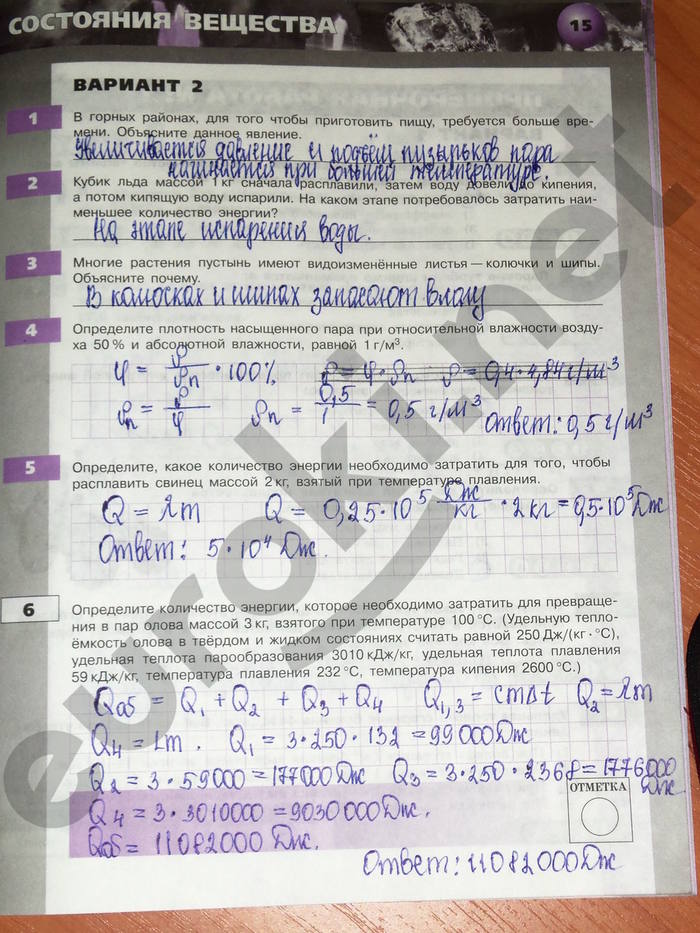 СОСТОЯНИЯ ВЕЩЕСТВА
15
ВАРИАНТ 2
1
В горных районах, для того чтобы приготовить пищу, требуется больше вре-
мени. Объясните данное явление.
Увеличивается давление и подъём пузырьков пара
начинается при большей температуре.
2
Кубик льда массой 1 кг сначала расплавили, затем воду довели до кипения,
а потом кипящую воду испарили. На каком этапе потребовалось затратить наи-
меньшее количество энергии?
На этапе испарения воды.
3
Многие растения пустынь имеют видоизменённые листья — колючки и шипы.
Объясните почему.
В колосках и шипах запасают влагу
4
Определите плотность насыщенного пара при относительной влажности возду-
ха 50 % и абсолютной влажности, равной 1 г/м³.
φ = ρ/ρп · 100% ρ = φ · ρп ρ = 0,4 · 4,84 г/м³
ρп = ρ/φ ρп = 0,5/1 = 0,5 г/м³ Ответ: 0,5 г/м³
5
Определите, какое количество энергии необходимо затратить для того, чтобы
расплавить свинец массой 2 кг, взятый при температуре плавления.
Q = λm Q = 0,25 · 10⁵ Дж/кг · 2 кг = 0,5 · 10⁵ Дж
Ответ: 5 · 10⁴ Дж.
6
Определите количество энергии, которое необходимо затратить для превраще-
ния в пар олова массой 3 кг, взятого при температуре 100 °С. (Удельную тепло-
ёмкость олова в твёрдом и жидком состояниях считать равной 250 Дж/(кг · °С),
удельная теплота парообразования 3010 кДж/кг, удельная теплота плавления
59 кДж/кг, температура плавления 232 °С, температура кипения 2600 °С.)
Qоб = Q₁ + Q₂ + Q₃ + Q₄ Q₁,₃ = cmΔt Q₂ = λm
Q₄ = Lm. Q₁ = 3 · 250 · 132 = 99000 Дж
Q₂ = 3 · 59000 = 177000 Дж Q₃ = 3 · 250 · 2368 = 1776000 Дж.
ОТМЕТКА
Q₄ = 3 · 3010000 = 9030000 Дж.
Qоб = 11082000 Дж.
Ответ: 11082000 Дж
euroki.net